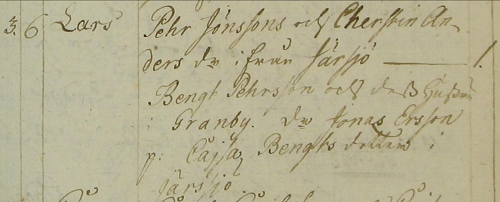 3. 6 Lars Pehr Jönssons och Cherstin An-
ders dr ifrån Järsjö — 1.
Bengt Pehrsson och dess Hustru
i Granby. Dr Jonas Ersson
p: Cajsa Bengts dotter i
Järsjö